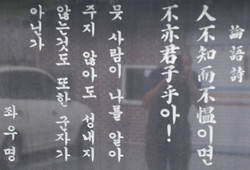 論語詩
人不知而不慍이면
不亦君子乎아!
뭇 사람이 나를 알아
주지 않아도 성내지
않는것도 또한 군자가
아닌가
좌우명